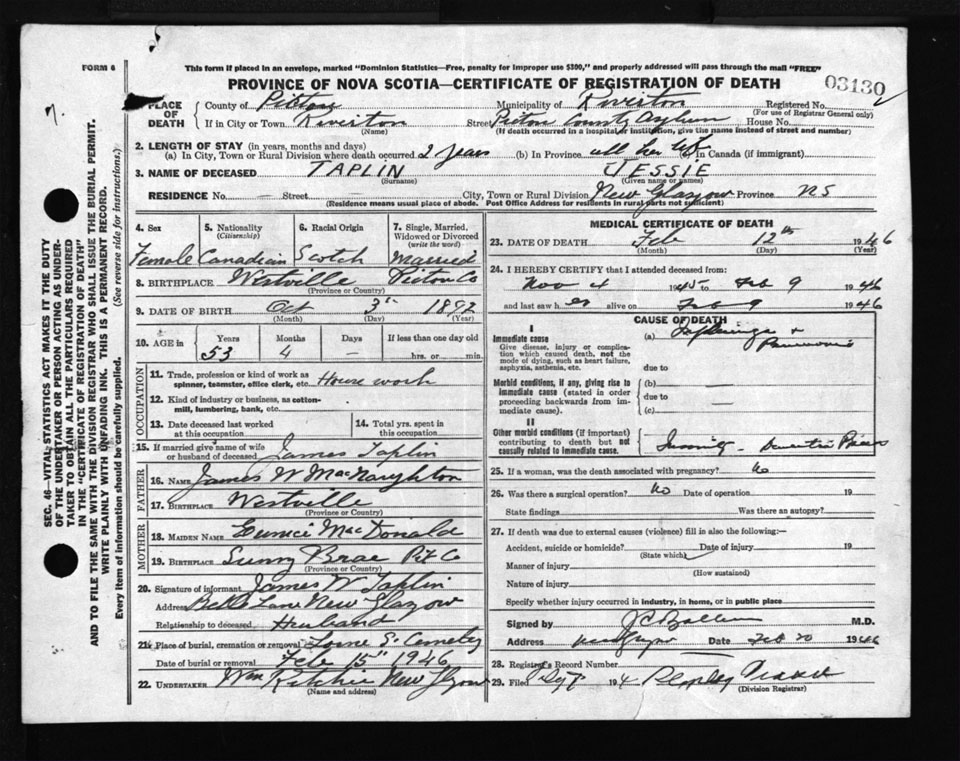 FORM 6
This form if placed in an envelope, marked "Dominion Statistics—Free, penalty for improper use $300," and properly addressed will pass through the mail "FREE"
PROVINCE OF NOVA SCOTIA—CERTIFICATE OF REGISTRATION OF DEATH
03130
PLACE OF DEATH
County of Pictou Municipality of Riverton Registered No.
(For use of Registrar General only)
If in City or Town Riverton Street Pictou County Asylum House No.
(Name) (If death occurred in a hospital or institution, give the name instead of street and number)
2. LENGTH OF STAY (in years, months and days)
(a) In City, Town or Rural Division where death occurred 2 years (b) In Province all her life In Canada (if immigrant)
3. NAME OF DECEASED TAPLIN JESSIE
(Surname) (Given name or names)
RESIDENCE No. — Street City, Town or Rural Division New Glasgow Province NS
(Residence means usual place of abode. Post Office Address for residents in rural parts not sufficient)
4. Sex 5. Nationality (Citizenship) 6. Racial Origin 7. Single, Married, Widowed or Divorced (write the word)
Female Canadian Scotch Married
8. BIRTHPLACE Westville Pictou Co
(Province or Country)
9. DATE OF BIRTH Oct 3rd 1892
(Month) (Day) (Year)
10. AGE in Years Months Days If less than one day old
53 4 — hrs. or min.
OCCUPATION
11. Trade, profession or kind of work as spinner, teamster, office clerk, etc. House work
12. Kind of industry or business, as cotton-mill, lumbering, bank, etc.
13. Date deceased last worked at this occupation
14. Total yrs. spent in this occupation
15. If married give name of wife or husband of deceased James Taplin
FATHER
16. NAME James W MacNaughton
17. BIRTHPLACE Westville
(Province or Country)
MOTHER
18. MAIDEN NAME Eunice MacDonald
19. BIRTHPLACE Sunny Brae Pit Co
(Province or Country)
20. Signature of informant James W Taplin
Address Belle Lane New Glasgow
Relationship to deceased Husband
21. Place of burial, cremation or removal Lorne S.
Date of burial or removal Feb 15" 1946
22. UNDERTAKER Wm Ritchie New Glasgow
(Name and address)
MEDICAL CERTIFICATE OF DEATH
23. DATE OF DEATH Feb 12th 1946
(Month) (Day) (Year)
24. I HEREBY CERTIFY that I attended deceased from:
Nov 4 1945 to Feb 9 1946
and last saw her alive on Feb 9 1946
CAUSE OF DEATH
I
Immediate cause
Give disease, injury or complication which caused death, not the mode of dying, such as heart failure, asphyxia, asthenia, etc.
(a)
due to
Morbid conditions, if any, giving rise to immediate cause (stated in order proceeding backwards from immediate cause).
(b) —
due to
(c)
II
Other morbid conditions (if important) contributing to death but not causally related to immediate cause.
25. If a woman, was the death associated with pregnancy? No
26. Was there a surgical operation? No Date of operation 19
State findings Was there an autopsy?
27. If death was due to external causes (violence) fill in also the following:—
Accident, suicide or homicide? Date of injury 19
(State which)
Manner of injury
(How sustained)
Nature of injury
Specify whether injury occurred in industry, in home, or in public place
Signed by M.D.
Address Date Feb 20 1946
28. Registrar's Record Number
29. Filed 194
(Division Registrar)
SEC. 46—VITAL STATISTICS ACT MAKES IT THE DUTY
OF THE UNDERTAKER OR PERSON ACTING AS UNDER-
TAKER TO OBTAIN ALL THE PARTICULARS REQUIRED
IN THE "CERTIFICATE OF REGISTRATION OF DEATH"
AND TO FILE THE SAME WITH THE DIVISION REGISTRAR WHO SHALL ISSUE THE BURIAL PERMIT.
WRITE PLAINLY WITH UNFADING INK. THIS IS A PERMANENT RECORD.
Every item of information should be carefully supplied. (See reverse side for instructions.)